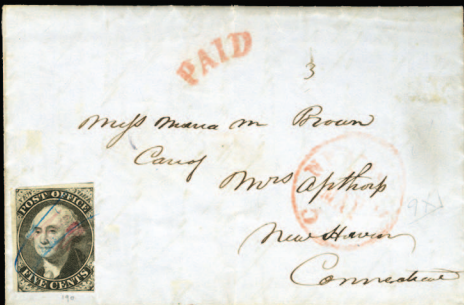 PAID
3
Miss Maria M Brown
Care of
Mrs Apthorp
New Haven
Connecticut
POST OFFICE
FIVE CENTS